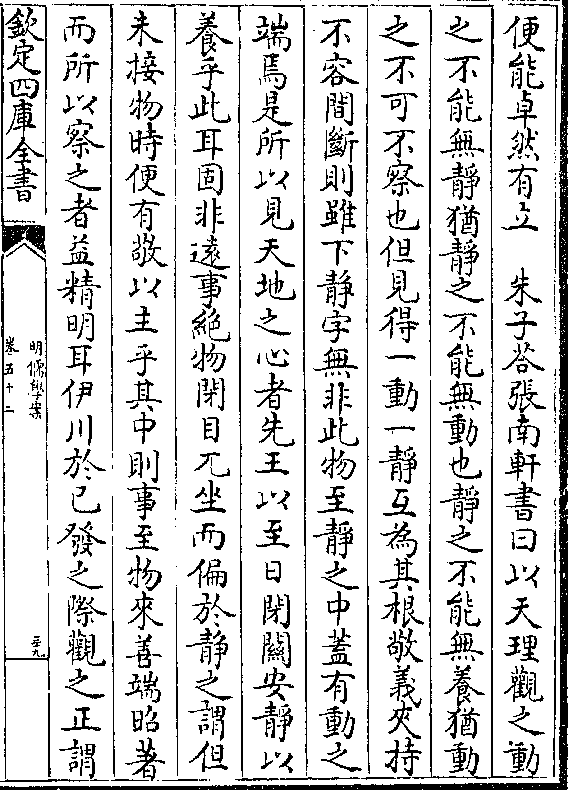 便能卓然有立　朱子荅張南軒書曰以天理觀之動
之不能無靜猶靜之不能無動也靜之不能無養猶動
之不可不察也但見得一動一靜互為其根敬義夾持
不容間斷則雖下靜字無非此物至靜之中蓋有動之
端焉是所以見天地之心者先王以至日閉關安靜以
養乎此耳固非遠事絶物閉目兀坐而偏於靜之謂但
未接物時便有敬以主乎其中則事至物來善端昭著
而所以察之者益精明耳伊川於已發之際觀之正謂
欽定四庫全書
明儒學案
卷五十二
三九